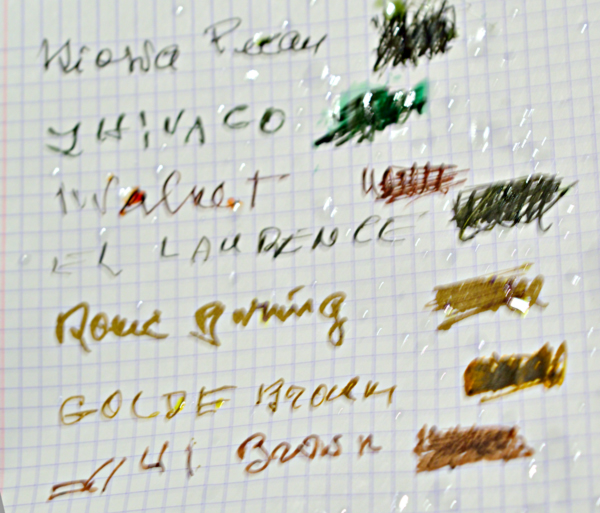 Kiowa Pecan
ZHIVAGO
Walnut
EL LAURENCE
Rome Burning
GOLDE BROUN
Brown